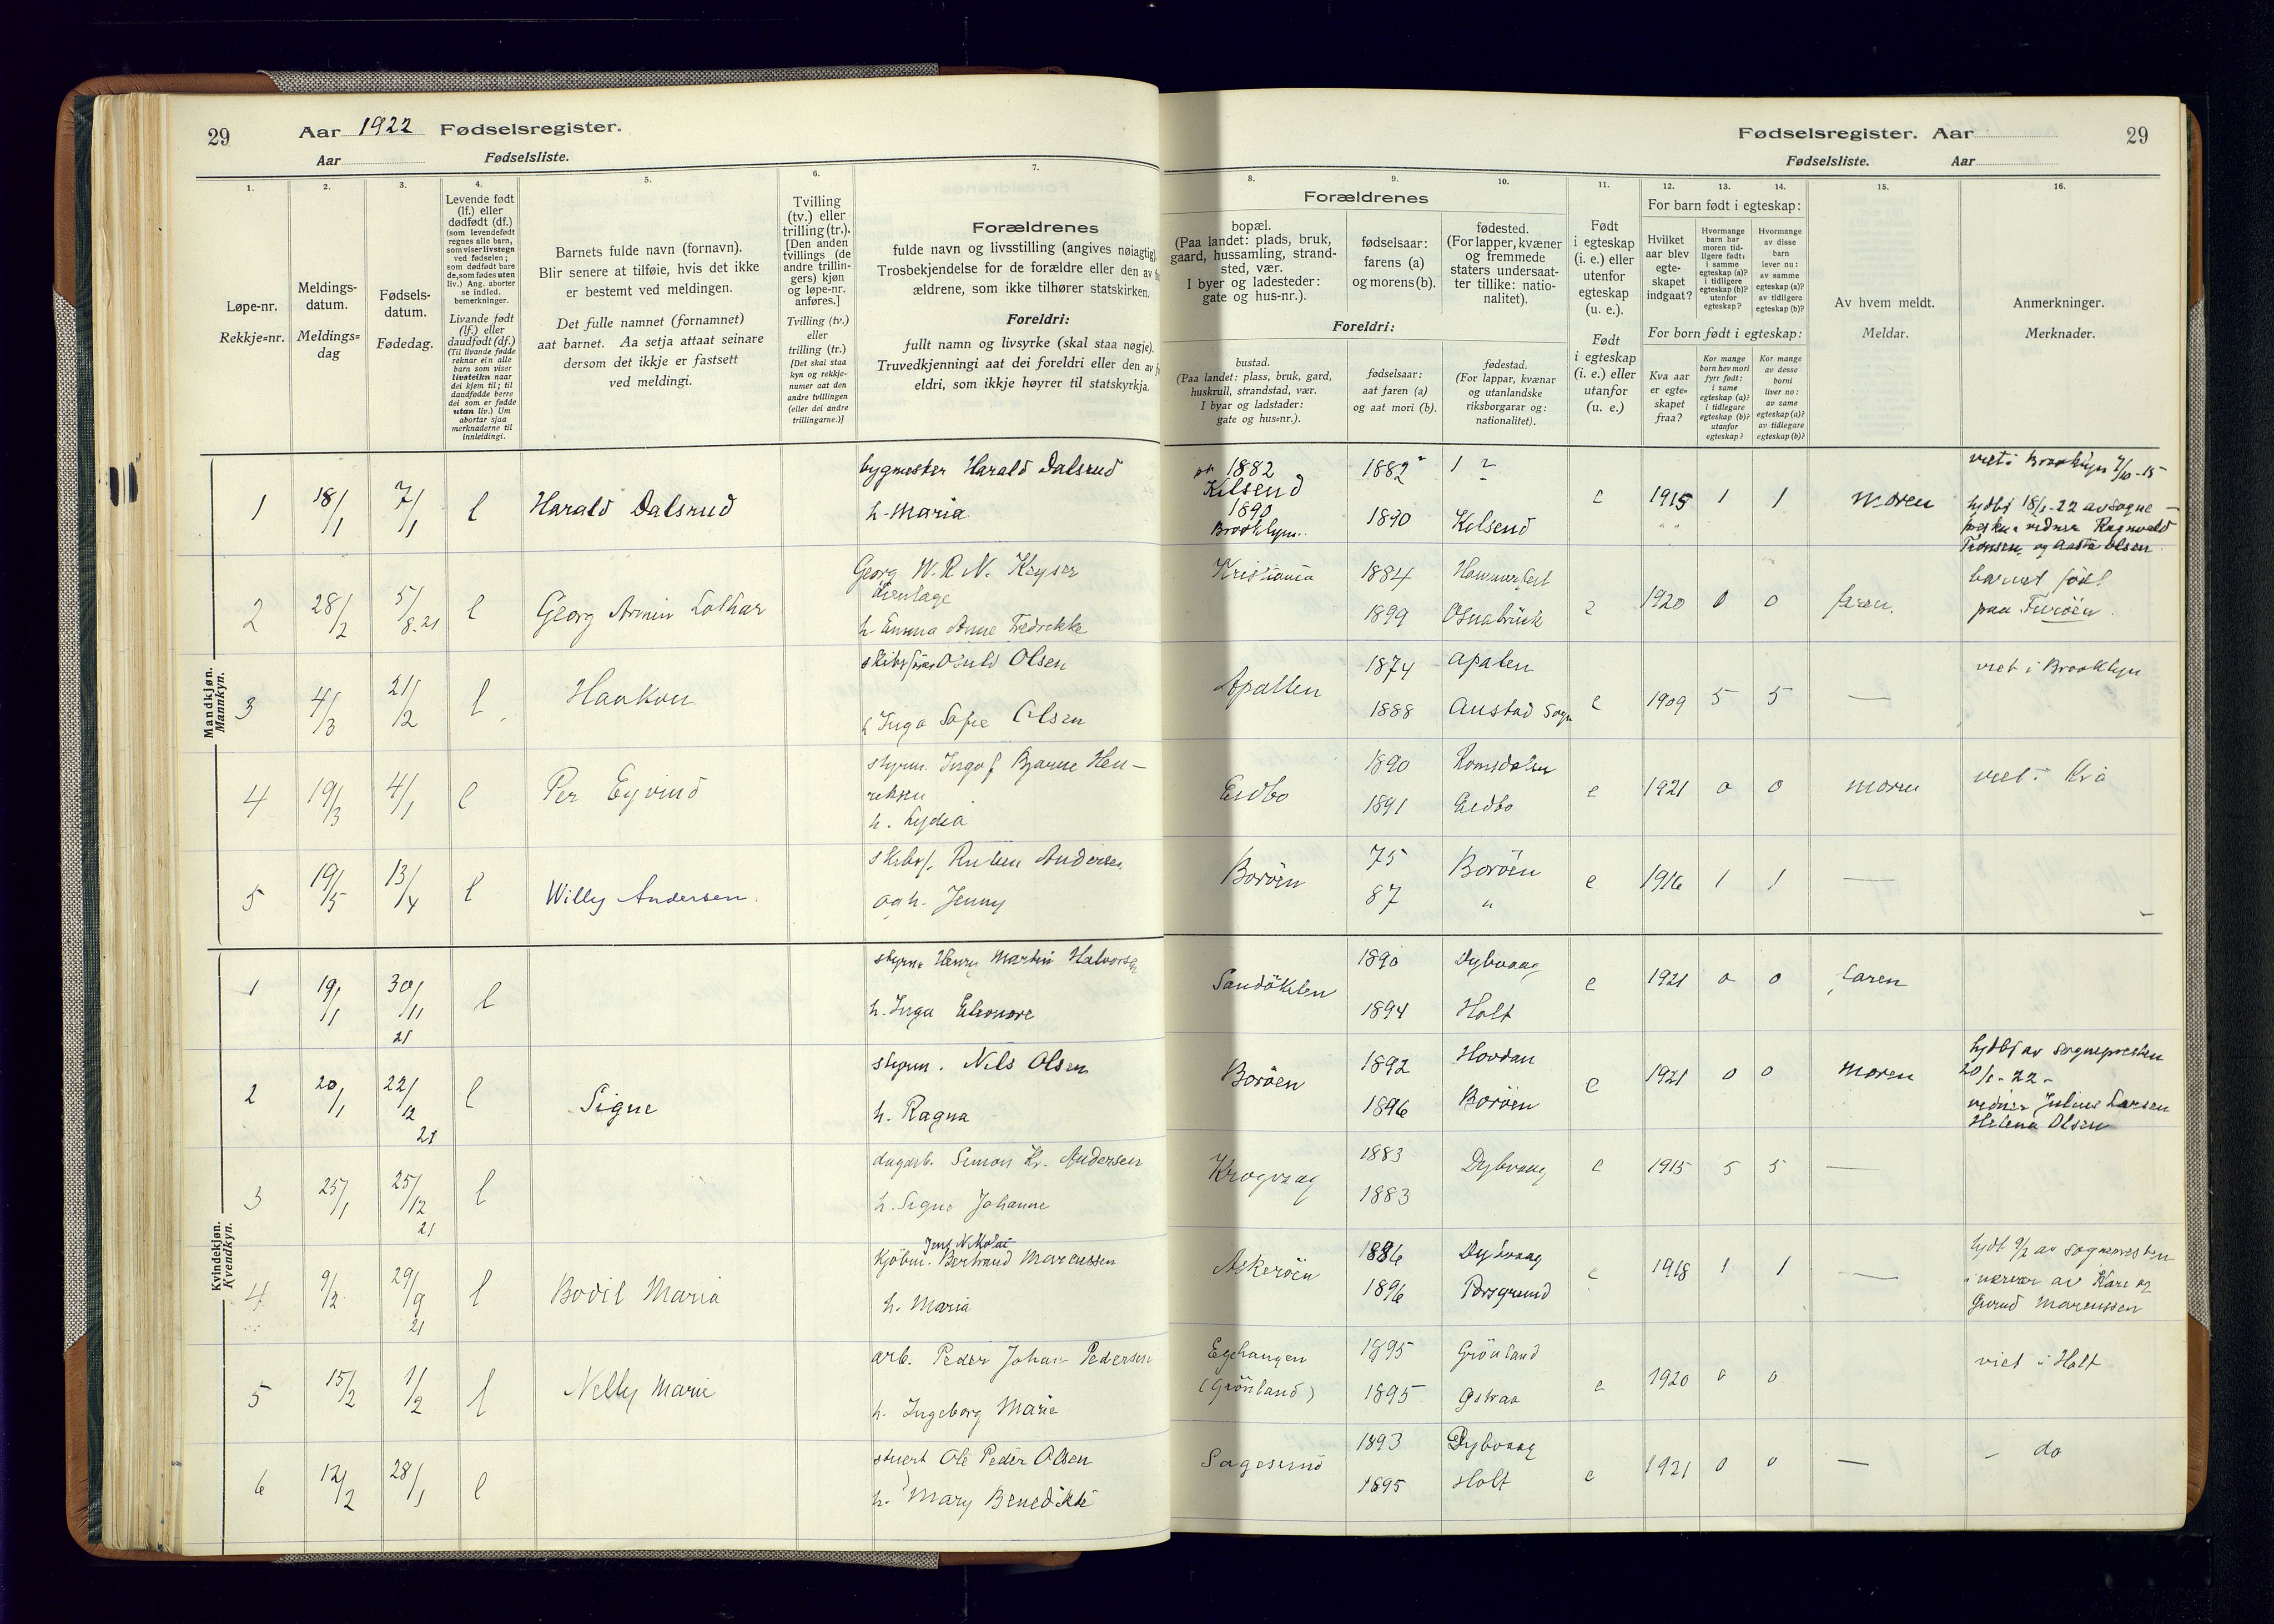 29 Aar 1922 Fødselsregister.
Aar Fødselsliste.
1. 2. 3. 4. 5. 6. 7.
Løpe-nr.
Rekkje=nr.
Meldings-
datum.
Meldings=
dag
Fødsels-
datum.
Fødedag.
Levende født
(lf.) eller
dødfødt (df.)
(som levendefødt
regnes alle barn,
som viser livstegn
ved fødselen;
som dødfødt bare
de, som fødes uten
liv.) Ang. aborter
se indled.
bemerkninger.
Livande født
(lf.) eller
daudfødt (df.)
(Til livande fødde
reknar ein alle
barn som viser
livsteikn naar
dei kjem til; til
daudfødde berre
dei som er fødde
utan liv.) Um
abortar sjaa
merknaderne til
innleidingi.
Barnets fulde navn (fornavn).
Blir senere at tilføie, hvis det ikke
er bestemt ved meldingen.
Det fulle namnet (fornamnet)
aat barnet. Aa setja attaat seinare
dersom det ikkje er fastsett
ved meldingi.
Tvilling
(tv.) eller
trilling (tr.).
[Den anden
tvillings (de
andre trillin-
gers) kjøn
og løpe-nr.
anføres.]
Tvilling (tv.)
eller
trilling (tr.)
[Det skal staa
kyn og rekkje-
numer aat den
andre tvillingen
(eller dei andre
trillingarne.)]
Forældrenes
fulde navn og livsstilling (angives nøiagtig).
Trosbekjendelse for de forældre eller den av
ældrene, som ikke tilhører statskirken.
Foreldri:
fullt namn og livsyrke (skal staa nøgje).
Truvedkjenningi aat dei foreldri eller den av
eldri, som ikkje høyrer til statskyrkja.
Fødselsregister. Aar 29
Fødselsliste. Aar
8. 9. 10. 11. 12. 13. 14. 15. 16.
Forældrenes
bopæl.
(Paa landet: plads, bruk,
gaard, hussamling, strand-
sted, vær.
I byer og ladesteder:
gate og hus-nr.).
fødselsaar:
farens (a)
og morens (b).
fødested.
(For lapper, kvæner
og fremmede
staters undersaat-
ter tillike: natio-
nalitet).
Foreldri:
bustad.
(Paa landet: plass, bruk, gard,
huskrull, strandstad, vær.
I byar og ladstader:
gate og hus=nr.).
fødselsaar:
aat faren (a)
og aat mori (b).
fødestad.
(For lappar, kvænar
og utanlandske
riksborgarar og:
nationalitet).
Født
i egteskap
(i. e.) eller
utenfor
egteskap
(u. e.).
Født
i egteskap
(i. e.) eller
utanfor
(u. e.)
For barn født i egteskap:
Hvilket
aar blev
egte-
skapet
indgaat?
Hvormange
barn har
moren tid-
ligere født:
i samme
egteskap (a)?
i tidligere
egteskap (b)?
utenfor
egteskap?
Hvormange
av disse
barn
lever nu:
av samme
egteskap (a)?
av tidligere
egteskap (b)?
For born født i egteskap:
Kva aar
er egte=
skapet
fraa?
Kor mange
born hev mori
fyrr født:
i same
egteskap (a)?
i tidlegare
egteskap (b)?
utanfor
egteskap?
Kor mange
av desse
borni
liver no:
av same
egteskap (a)?
av tidlegare
egteskap (b)?
Av hvem meldt.
Meldar.
Anmerkninger.
Merknader.
Mandkjøn.
Mannkyn.
1 18/1 7/1 l Harald Dalsrud bygmester Harald Dalsrud
h. Maria
1882
Kilsend
1890
Brooklyn
1882 ?
1890 Kilsend
e 1915 1 1 moren
viet i Brooklyn 7/10-15
hjdbt 18/1-22 av sogne-
Ragnvald
og Aasta Olsen
2 28/2 5/8.21 l Georg Armin Lothar Georg W. R. N. Keyser
h. Emma Anne Fredrikke
Kristiania 1884 Hammerfest
1899 Osnabrück
e 1920 0 0 faren.
barnet født
paa Furöen.
3 4/3 21/12 l Haakon Olsen
h Inga Sofie Olsen
Apalten 1874 Apalten
1888 Austad Sogn
e 1909 5 5 —
viet i Brooklyn
4 19/3 4/1 l Per Eyvind styrm. Ingolf Bjarne Hen-
riksen
h. Lydia
Eidbo 1890 Romsdalen
1891 Eidbo
e 1921 0 0 moren
viet i Kr.a
5 19/5 13/4 l Willy Andersen. skibsf. Ruben Andersen
og h. Jenny
Boröen 75 Boröen
87 "
e 1916 1 1 —
Kvindekjøn.
Kvendkyn.
1 19/1 30/11 21 l styrm. Henry Martin Halvorsen
h. Inga Eleonore
Sandöklen 1890 Dybvaag
1894 Holt
e 1921 0 0 faren
2 20/1 22/12 21 l Signe styrm. Nils Olsen
h. Ragna
Boröen 1892 Hovdan
1896 Boröen
e 1921 0 0 moren
hjdbt av sognepresten
20/1-22-
vidner Julius Larsen
Helena Olsen
3 25/1 25/12 21 l dagarb. Simon Kr. Andersen
h. Signe Johanne
Krogvaag 1883 Dybvaag
1883
e 1915 5 5 —
4 9/2 29/9 21 l Bodil Maria Jens Nikolai
kjöbm. Bertrand Marcussen
h. Maria
Askeröen 1886 Dybvaag
1896 Porsgrund
e 1918 1 1 —
hjdt 9/2 av sognepresten
i nærvær av Kare og
Gurid Marcussen
5 15/2 1/2 l Nelly Marie arb. Peder Johan Pedersen
h. Ingeborg Marie
Egehaugen
(Grönland)
1895 Grönland
1895 Gjstraa
e 1920 0 0
viet i Holt
6 12/2 28/1 l stuert Ole Peder Olsen
h. Mary Benedikte
Sagesund 1893 Dybvaag
1895 Holt
e 1921 0 0 —
- do